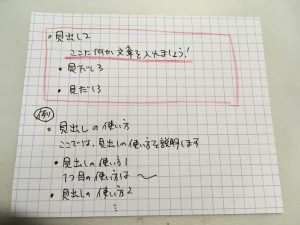 ・見出し2
ここに何か文章を入れましょう!
・見だし3
・見だし3
例
・見出しの使い方
ここでは、見出しの使い方を説明します
・見出しの使い方1
1つ目の使い方は〜
・見出しの使い方2
⋮